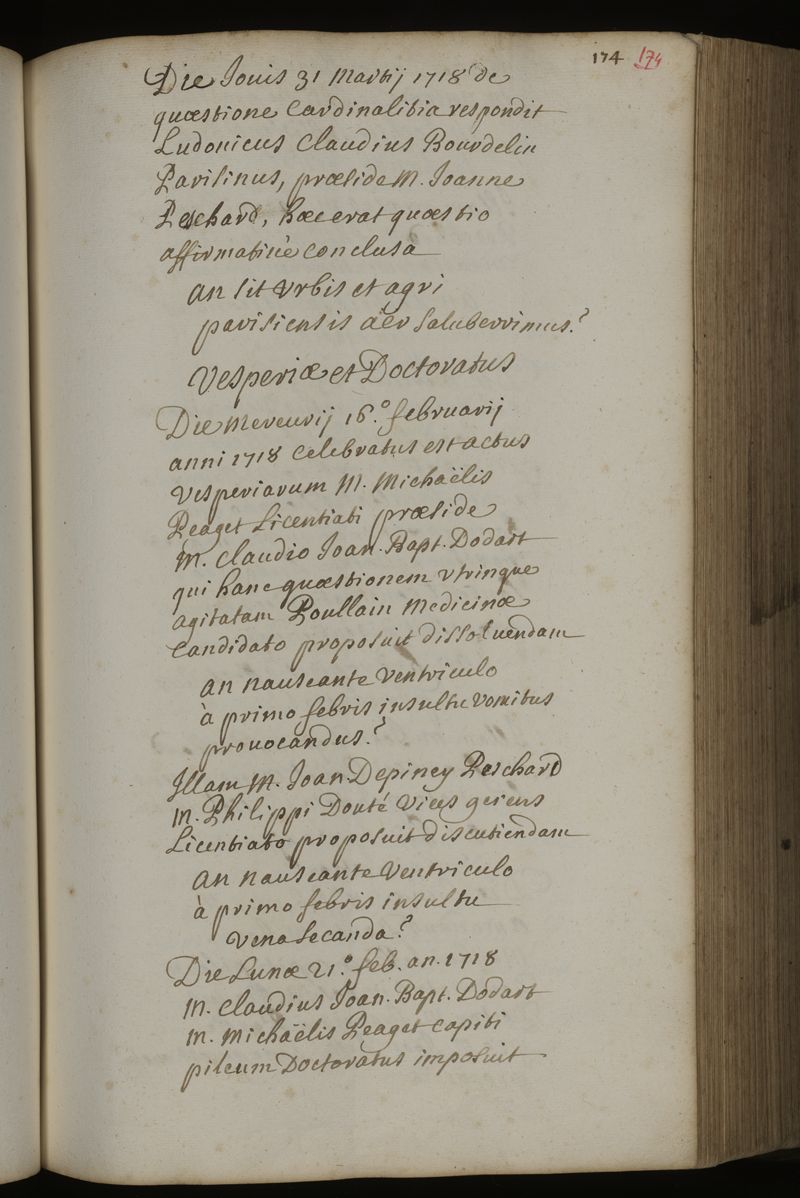 174 174
Die Jouis 31 Martij 1718 de
quæstione Cardinalitia respondit
Ludouicus Claudius Bourdelin
Parisinus, præside M. Joanne
Peschard, hæc erat quæstio
affirmatiuè conclusa
An sit Vrbis et agri
parisiensis aër saluberrimus?
Vesperiæ et Doctoratus
Die Mercurij 16.º februarij
anni 1718 Celebratus est actus
Vesperiarum M. Michaëlis
Peaget Licentiati præside
M. Claudio Joan. Bapt. Dodart
qui hanc quæstionem vtrinque
agitatam Poullain Medicinæ
Candidato proposuit dissoluendam
An nauseante Ventriculo
à primo febris insultu vomitus
prouocandus?
Illam M. Joan Depiney Peschard
M. Philippi Douté Vices gerens
Licentiato proposuit discutiendam
An nauseante Ventriculo
à primo febris insultu
Vena secanda?
Die Lunæ 21.º feb. an. 1718
M. Claudius Joan. Bapt. Dodart
M. Michaëlis Peaget capiti
pileum Doctoratus imposuit